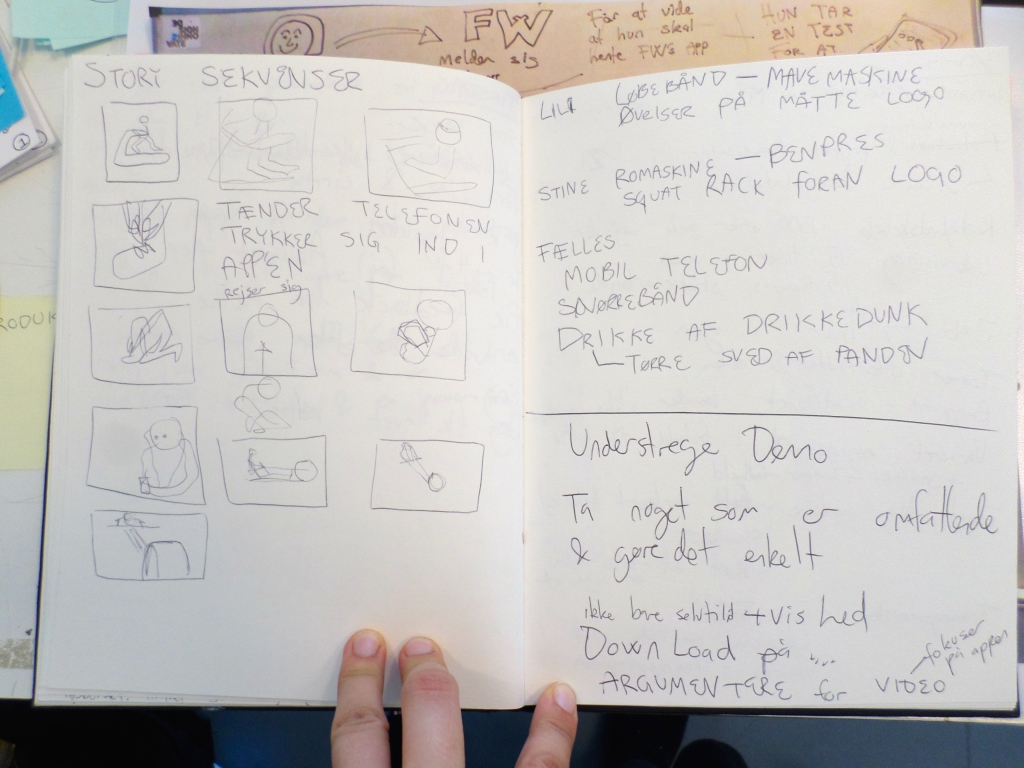 FW
melden sig
For at vide
at hun skal
hente FW's APP
HUN TAR
EN TEST
FOR AT
STORY SEKVENSER
TÆNDER TELEFONEN
TRYKKER SIG IND I
APPEN
rejser sig
LILI LØBEBÅND — MAVEMASKINE
ØVELSER PÅ MÅTTE LOGO
STINE ROMASKINE — BENPRES
SQUAT RACK FORAN LOGO
FÆLLES
MOBIL TELEFON
SNØREBÅND
DRIKKE AF DRIKKEDUNK
TØRRE SVED AF PANDEN
Understrege Demo
Ta noget som er omfattende
& gøre det enkelt
ikke bare selvtild + vis hed
Down Load på ...
fokuser
på appen
ARGUMENTERE for VIDEO
RODUK